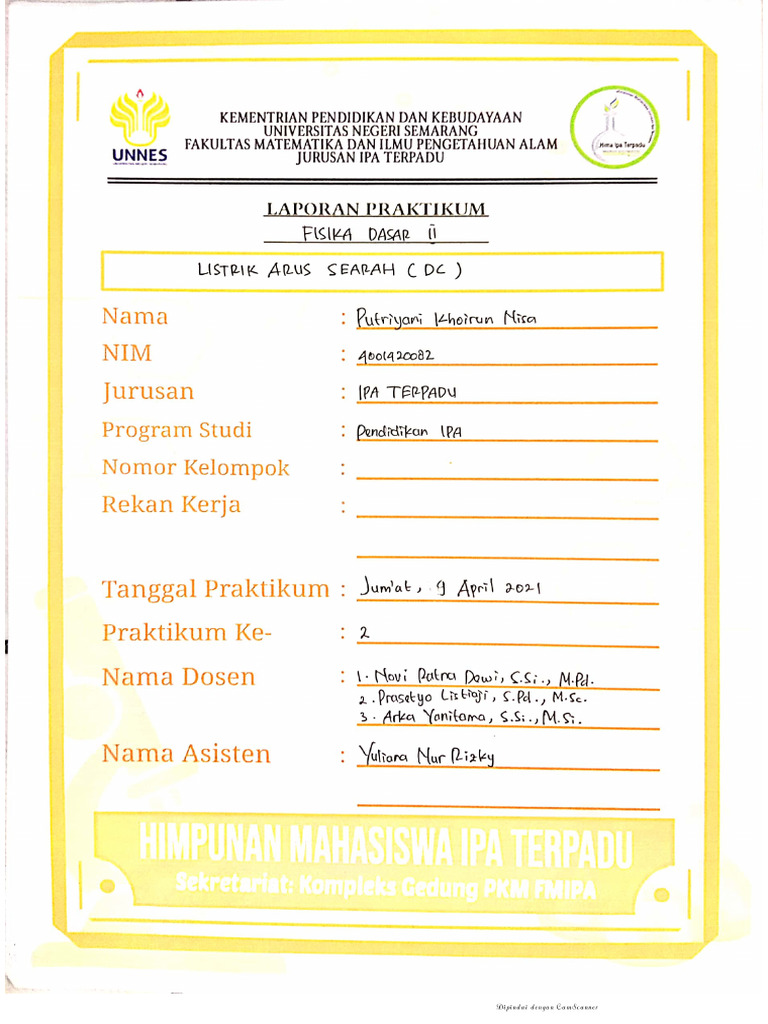 KEMENTRIAN PENDIDIKAN DAN KEBUDAYAAN
UNIVERSITAS NEGERI SEMARANG
FAKULTAS MATEMATIKA DAN ILMU PENGETAHUAN ALAM
JURUSAN IPA TERPADU
UNNES
Hima Ipa Terpadu
LAPORAN PRAKTIKUM
FISIKA DASAR II
LISTRIK ARUS SEARAH (DC)
Nama : Putriyani Khoirun Nisa
NIM : 4001420082
Jurusan : IPA TERPADU
Program Studi : Pendidikan IPA
Nomor Kelompok :
Rekan Kerja :
Tanggal Praktikum : Jum'at, 9 April 2021
Praktikum Ke- : 2
Nama Dosen : 1. Novi Ratna Dewi, S.Si., M.Pd.
2. Prasetyo Listiaji, S.Pd., M.Sc.
3. Arka Yanitama, S.Si., M.Si.
Nama Asisten : Yuliana Nur Rizky
HIMPUNAN MAHASISWA IPA TERPADU
Sekretariat: Kompleks Gedung PKM FMIPA
Dipindai dengan CamScanner